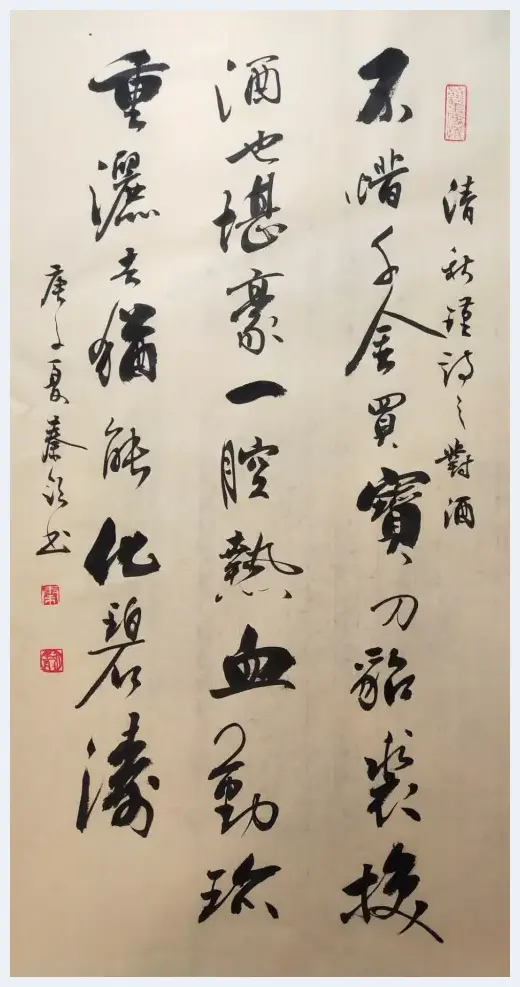 清秋瑾詩之對酒
不惜千金買寶刀貂裘換
酒也堪豪一腔熱血勤珍
重灑去猶能化碧濤
庚子夏秦书